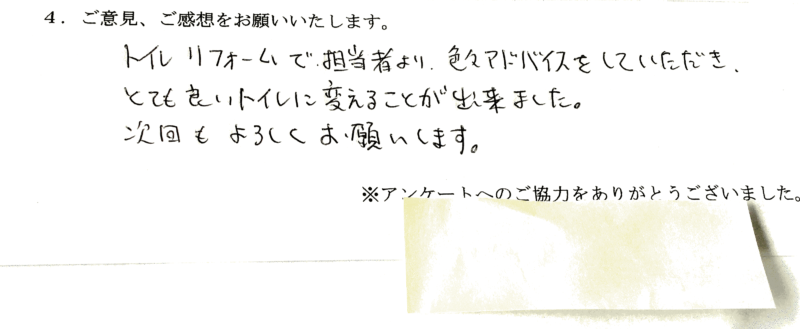 4．ご意見、ご感想をお願いいたします。
トイレリフォームで担当者より、色々アドバイスをしていただき、
とても良いトイレに変えることが出来ました。
次回もよろしくお願いします。
※アンケートへのご協力をありがとうございました。